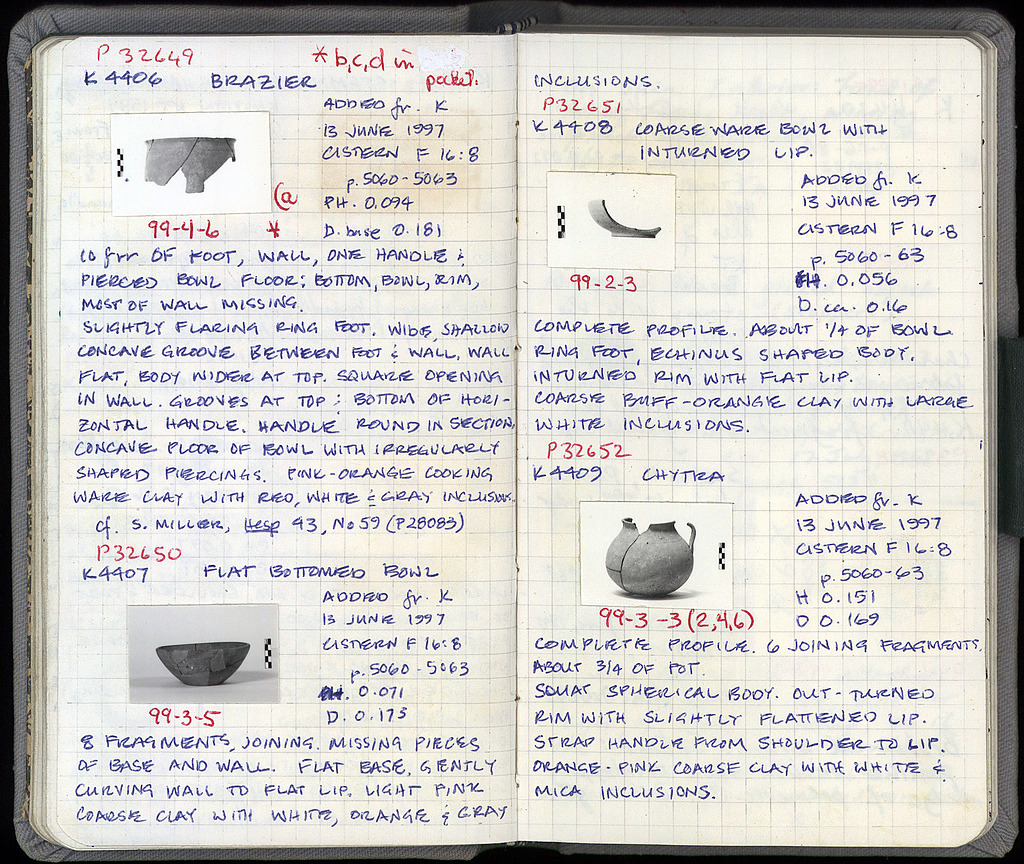 P 32649
* b,c,d in pocket.
K 4406 BRAZIER
ADDED fr. K
13 JUNE 1997
CISTERN F 16:8
p. 5060-5063
(a
PH. 0.094
99-4-6 *
D. base 0.181
10 frr OF FOOT, WALL, ONE HANDLE &
PIERCED BOWL FLOOR; BOTTOM, BOWL, RIM,
MOST OF WALL MISSING.
SLIGHTLY FLARING RING FOOT. WIDE, SHALLOW
CONCAVE GROOVE BETWEEN FOOT & WALL, WALL
FLAT, BODY WIDER AT TOP. SQUARE OPENING
IN WALL. GROOVES AT TOP & BOTTOM OF HORI-
ZONTAL HANDLE. HANDLE ROUND IN SECTION,
CONCAVE FLOOR OF BOWL WITH IRREGULARLY
SHAPED PIERCINGS. PINK-ORANGE COOKING
WARE CLAY WITH RED, WHITE & GRAY INCLUSIONS.
cf. S. MILLER, Hesp 43, No 59 (P28083)
P32650
K4407 FLAT BOTTOMED BOWL
ADDED fr. K
13 JUNE 1997
CISTERN F 16:8
p. 5060-5063
H. 0.071
99-3-5
D. 0.175
8 FRAGMENTS, JOINING. MISSING PIECES
OF BASE AND WALL. FLAT BASE, GENTLY
CURVING WALL TO FLAT LIP. LIGHT PINK
COARSE CLAY WITH WHITE, ORANGE & GRAY
INCLUSIONS.
P32651
K 4408 COARSE WARE BOWL WITH
INTURNED LIP.
ADDED fr. K
13 JUNE 1997
CISTERN F 16:8
p. 5060-63
99-2-3
H. 0.056
D. ca. 0.16
COMPLETE PROFILE. ABOUT 1/4 OF BOWL
RING FOOT, ECHINUS SHAPED BODY.
INTURNED RIM WITH FLAT LIP.
COARSE BUFF-ORANGE CLAY WITH LARGE
WHITE INCLUSIONS.
P32652
K 4409 CHYTRA
ADDED fr. K
13 JUNE 1997
CISTERN F 16:8
p. 5060-63
H 0.151
99-3-3 (2,4,6)
D 0.169
COMPLETE PROFILE. 6 JOINING FRAGMENTS.
ABOUT 3/4 OF POT.
SQUAT SPHERICAL BODY. OUT-TURNED
RIM WITH SLIGHTLY FLATTENED LIP.
STRAP HANDLE FROM SHOULDER TO LIP.
ORANGE-PINK COARSE CLAY WITH WHITE &
MICA INCLUSIONS.